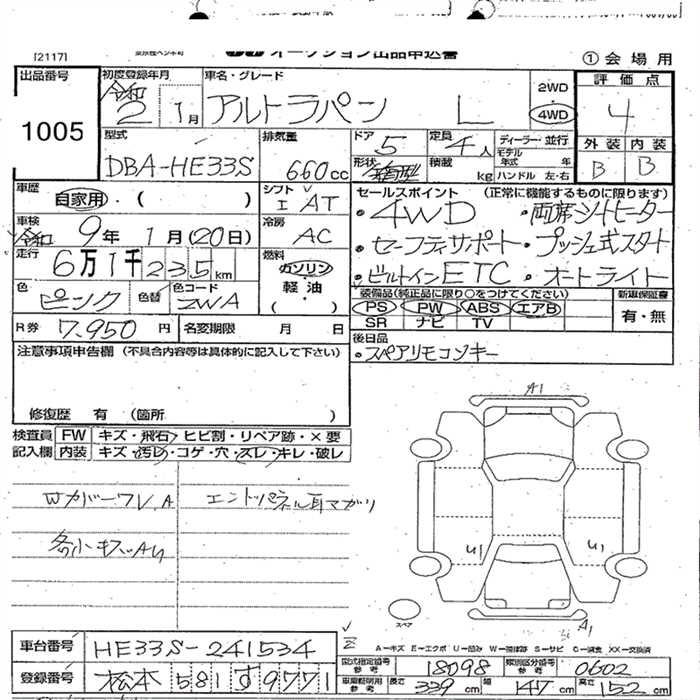 [2117]
オークション出品申込書
① 会場用
出品番号
1005
初度登録年月
令和 2 1月
車名・グレード
アルトラパン L
2WD
4WD
評価点
4
外装 内装
B B
型式
DBA-HE33S
排気量
660cc
ドア 5
定員 4人
形状
積載 kg
ディーラー・並行
モデル年式 年
ハンドル 左・右
車歴
自家用・( )
シフト
I AT
車検
令和 9年 1月(20日)
冷房
AC
走行
6万1千235km
燃料
ガソリン
軽油
( )
色
ピンク
色替
色コード
ZWA
R券 7,950円
名変期限 月 日
セールスポイント (正常に機能するものに限ります)
・4WD ・両席シートヒーター
・セーフティサポート ・プッシュ式スタート
・ビルトインETC ・オートライト
装備品(純正品に限り○をつけてください)
PS PW ABS エアB
SR ナビ TV
新車保証書
有・無
後日品
・スペアリモコンキー
注意事項申告欄 (不具合内容等は具体的に記入して下さい)
修復歴 有 (箇所 )
検査員記入欄
FW キズ・飛石 ヒビ割・リペア跡・×要
内装 キズ・汚れ・コゲ・穴・ズレ・キレ・破レ
Wカバーワレ.A
エンドパネル耳マガリ
各小キズAU
A1
U1
U1
A1
スペア
A-キズ E-エクボ U-凹み W-補修跡 S-サビ C-腐食 XX-交換済
車台番号 HE33S-241534
登録番号 松本 581 す 9771
型式指定番号 参考 18098
類別区分番号 参考 0602
車庫証明用 参考
長さ 339cm
幅 147cm
高さ 152cm